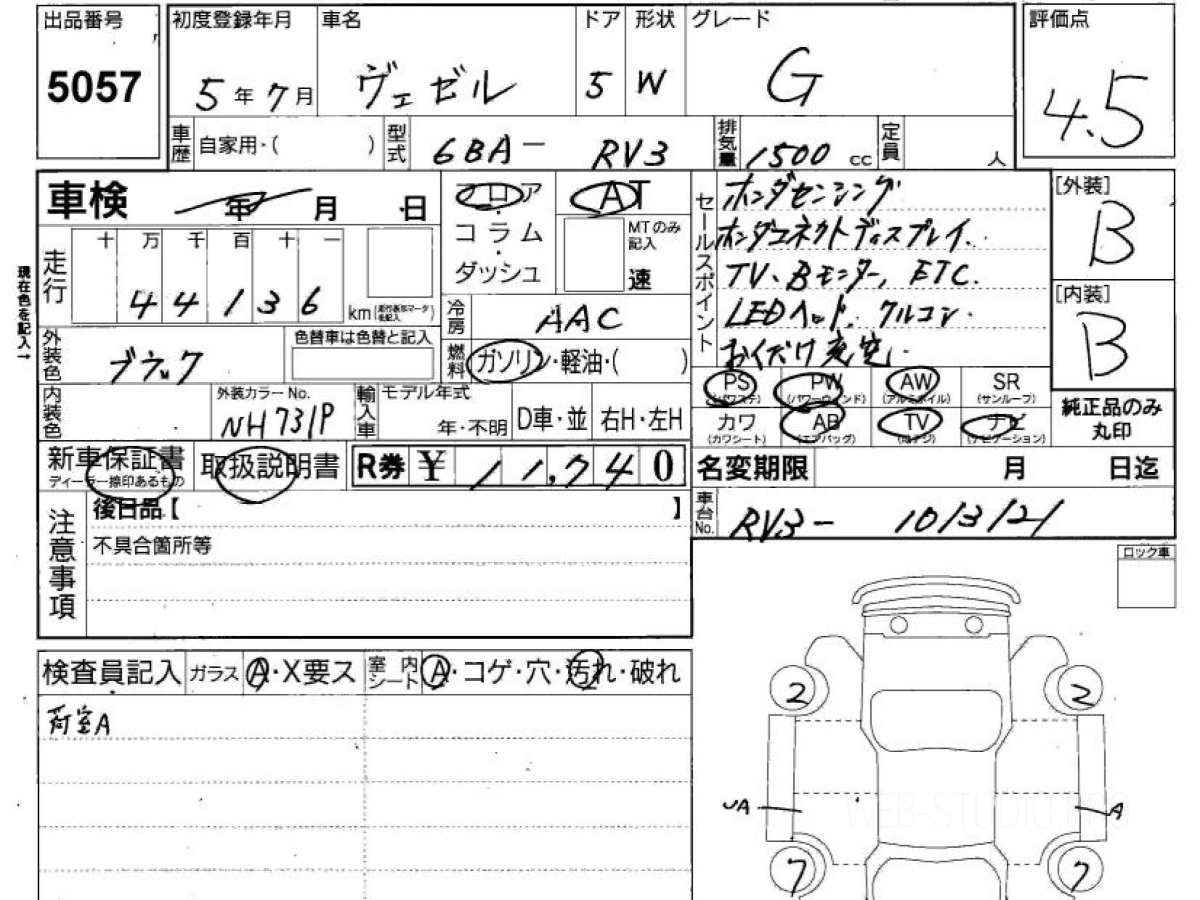 出品番号 初度登録年月 車名 ドア 形状 グレード 評価点
5057 5年7月 ヴェゼル 5 W G 4.5
車歴 自家用・( ) 型式 6BA- RV3 排気量 1500 cc 定員 人
車検 年 月 日 フロア AT セールスポイント ホンダセンシング [外装]
コラム MTのみ記入 ホンダコネクトディスプレイ. B
ダッシュ 速 TV、Bモニター, ETC.
現在色を記入→ 走行 十 万 千 百 十 一 [内装]
44136 km (走行表示マータを記入) 冷房 AAC LEDヘッド. クルコン. B
外装色 ブラック 色替車は色替と記入 燃料 ガソリン・軽油・( )
PS (パワステ) PW (パワーウィンド) AW (アルミホイル) SR (サンルーフ) 純正品のみ丸印
内装色 外装カラーNo. NH731P 輸入車 モデル年式 年・不明 D車・並 右H・左H
カワ (カワシート) AB (エアバッグ) TV (地デジ) ナビ (ナビゲーション)
新車保証書 ディーラー捺印あるもの 取扱説明書 R券 ¥ 11,740 名変期限 月 日迄
注意事項 後日品【 】 車台No. RV3- 1013121
不具合箇所等
ロック車
検査員記入 ガラス A・X要ス 室内シート A・コゲ・穴・汚れ・破れ
荷室A
2 2
UA A
WEB-STUDIO.PRO
7 7